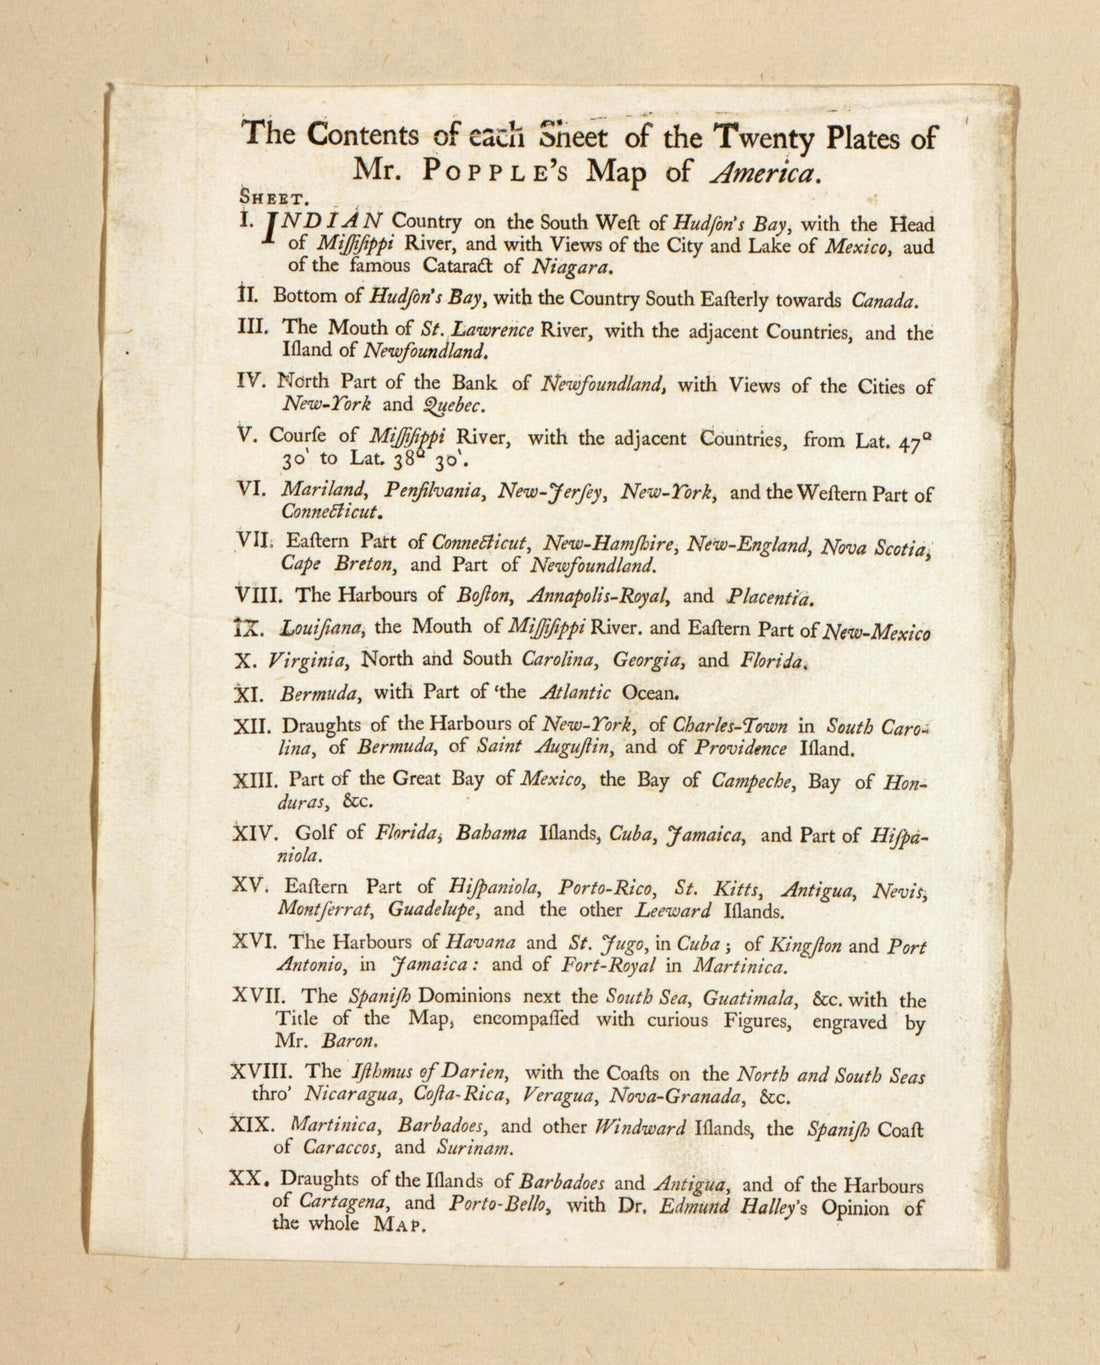 The Contents of each Sheet of the Twenty Plates of
Mr. POPPLE's Map of America.
SHEET.
I. INDIAN Country on the South Weſt of Hudſon's Bay, with the Head
of Miſſiſippi River, and with Views of the City and Lake of Mexico, aud
of the famous Cataract of Niagara.
II. Bottom of Hudſon's Bay, with the Country South Eaſterly towards Canada.
III. The Mouth of St. Lawrence River, with the adjacent Countries, and the
Iſland of Newfoundland.
IV. North Part of the Bank of Newfoundland, with Views of the Cities of
New-York and Quebec.
V. Courſe of Miſſiſippi River, with the adjacent Countries, from Lat. 47º
30' to Lat. 38º 30'.
VI. Mariland, Penſilvania, New-Jerſey, New-York, and the Weſtern Part of
Connecticut.
VII. Eaſtern Part of Connecticut, New-Hamſhire, New-England, Nova Scotia,
Cape Breton, and Part of Newfoundland.
VIII. The Harbours of Boſton, Annapolis-Royal, and Placentia.
IX. Louiſiana, the Mouth of Miſſiſippi River. and Eaſtern Part of New-Mexico
X. Virginia, North and South Carolina, Georgia, and Florida.
XI. Bermuda, with Part of 'the Atlantic Ocean.
XII. Draughts of the Harbours of New-York, of Charles-Town in South Caro-
lina, of Bermuda, of Saint Auguſtin, and of Providence Iſland.
XIII. Part of the Great Bay of Mexico, the Bay of Campeche, Bay of Hon-
duras, &c.
XIV. Golf of Florida, Bahama Iſlands, Cuba, Jamaica, and Part of Hiſpa-
niola.
XV. Eaſtern Part of Hiſpaniola, Porto-Rico, St. Kitts, Antigua, Nevis,
Montſerrat, Guadelupe, and the other Leeward Iſlands.
XVI. The Harbours of Havana and St. Jugo, in Cuba; of Kingſton and Port
Antonio, in Jamaica: and of Fort-Royal in Martinica.
XVII. The Spaniſh Dominions next the South Sea, Guatimala, &c. with the
Title of the Map, encompaſſed with curious Figures, engraved by
Mr. Baron.
XVIII. The Iſthmus of Darien, with the Coaſts on the North and South Seas
thro' Nicaragua, Coſta-Rica, Veragua, Nova-Granada, &c.
XIX. Martinica, Barbadoes, and other Windward Iſlands, the Spaniſh Coaſt
of Caraccos, and Surinam.
XX. Draughts of the Iſlands of Barbadoes and Antigua, and of the Harbours
of Cartagena, and Porto-Bello, with Dr. Edmund Halley's Opinion of
the whole MAP.